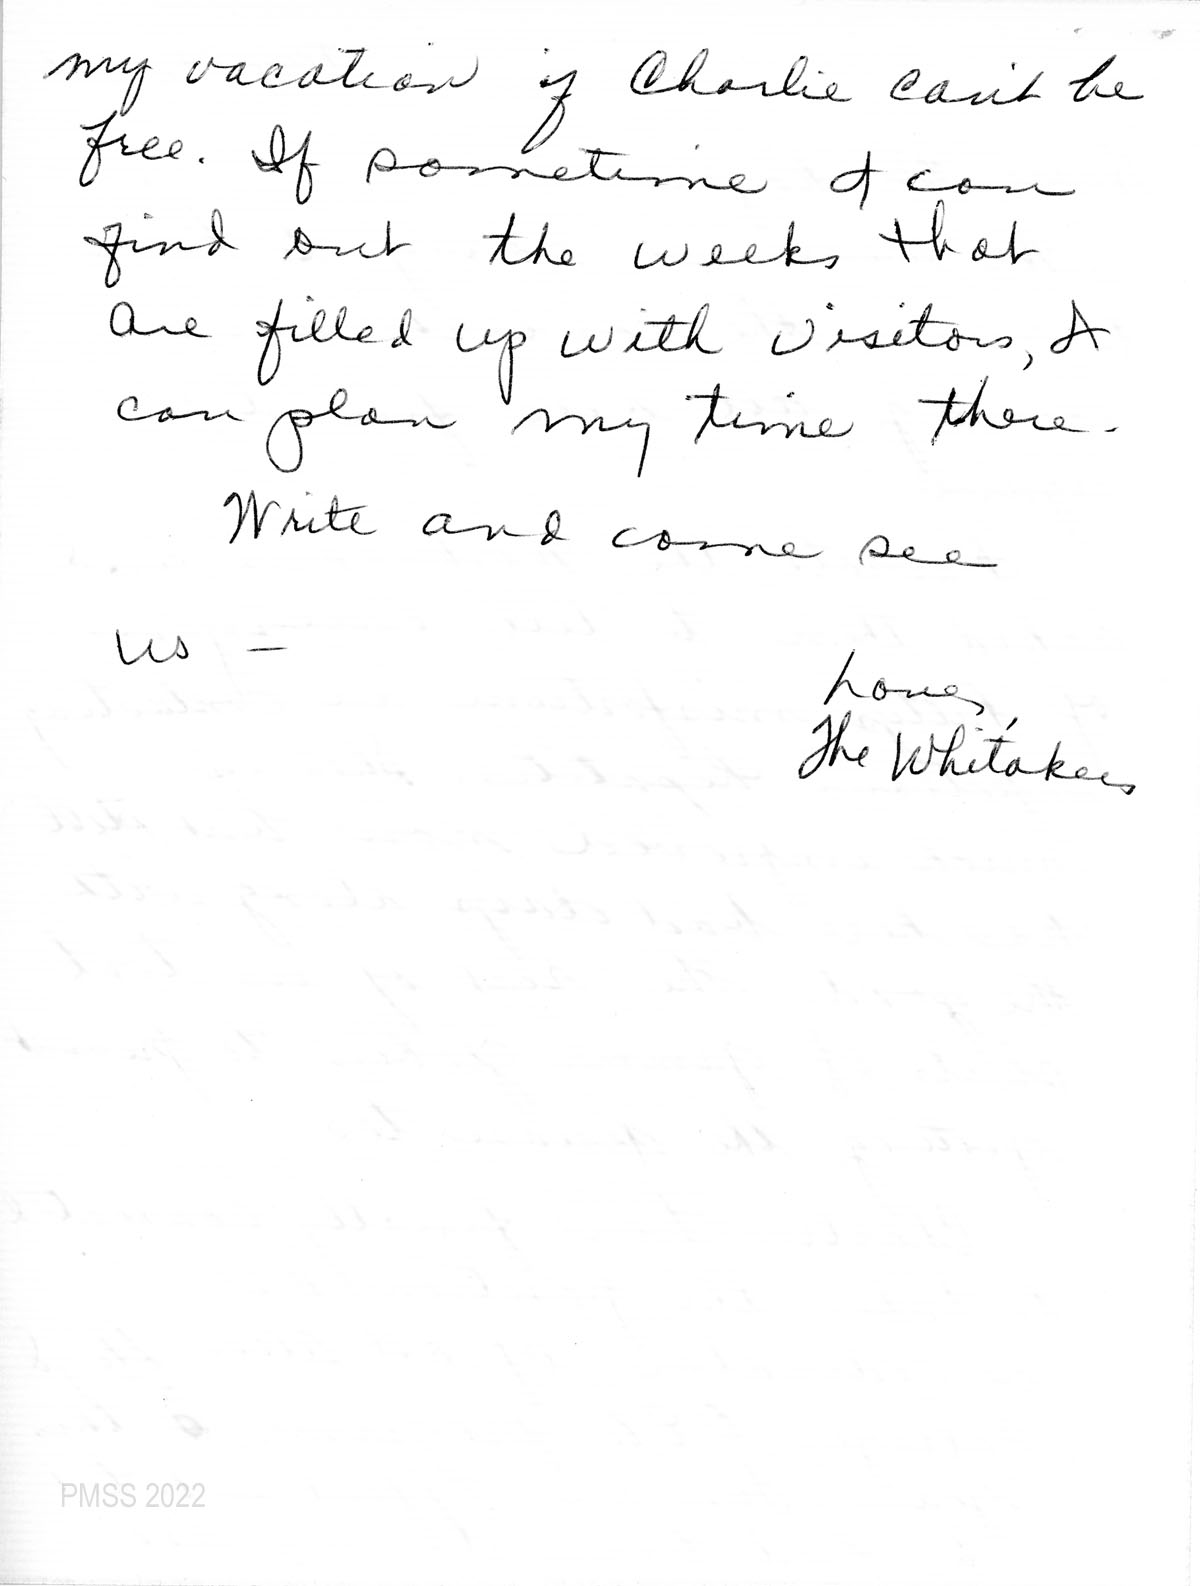 my vacation if Charlie can't be
free. If sometime I can
find out the weeks that
are filled up with visitors, I
can plan my time there.
Write and come see
us —
Love,
The Whitakers
PMSS 2022